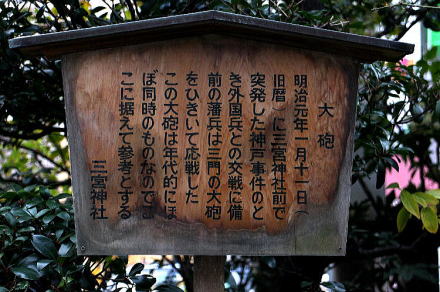 大砲
明治元年一月十一日(
旧暦)に三宮神社前で
突発した神戸事件のと
き外国兵との交戦に備
前の藩兵は二門の大砲
をひきいて応戦した
この大砲は年代的にほ
ぼ同時のものなのでこ
こに据えて参考とする
三宮神社